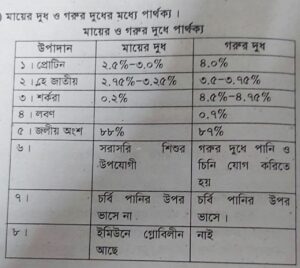 ) মায়ের দুধ ও গরুর দুধের মধ্যে পার্থক্য ।
মায়ের ও গরুর দুধে পার্থক্য
উপাদান মায়ের দুধ গরুর দুধ
১। প্রোটিন ২.৫%-৩.০% ৪.০%
২। স্নেহ জাতীয় ২.৭৫%-৩.২৫% ৩.৫-৩.৭৫%
৩। শর্করা ০.২% ৪.৫%-৪.৭৫%
৪। লবণ ০.৭%
৫। জলীয় অংশ ৮৮% ৮৭%
৬। সরাসরি শিশুর গরুর দুধে পানি ও
উপযোগী চিনি যোগ করিতে
হয়
৭। চর্বি পানির উপর চর্বি পানির উপর
ভাসে না। ভাসে।
৮। ইমিউনে গ্লোবিলীন নাই
আছে